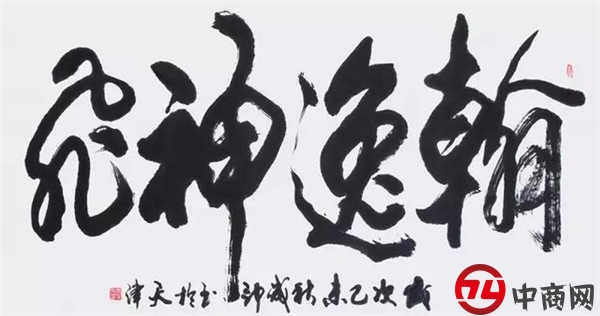 翰逸神飛
歲次乙未秋 書於天津
中商网